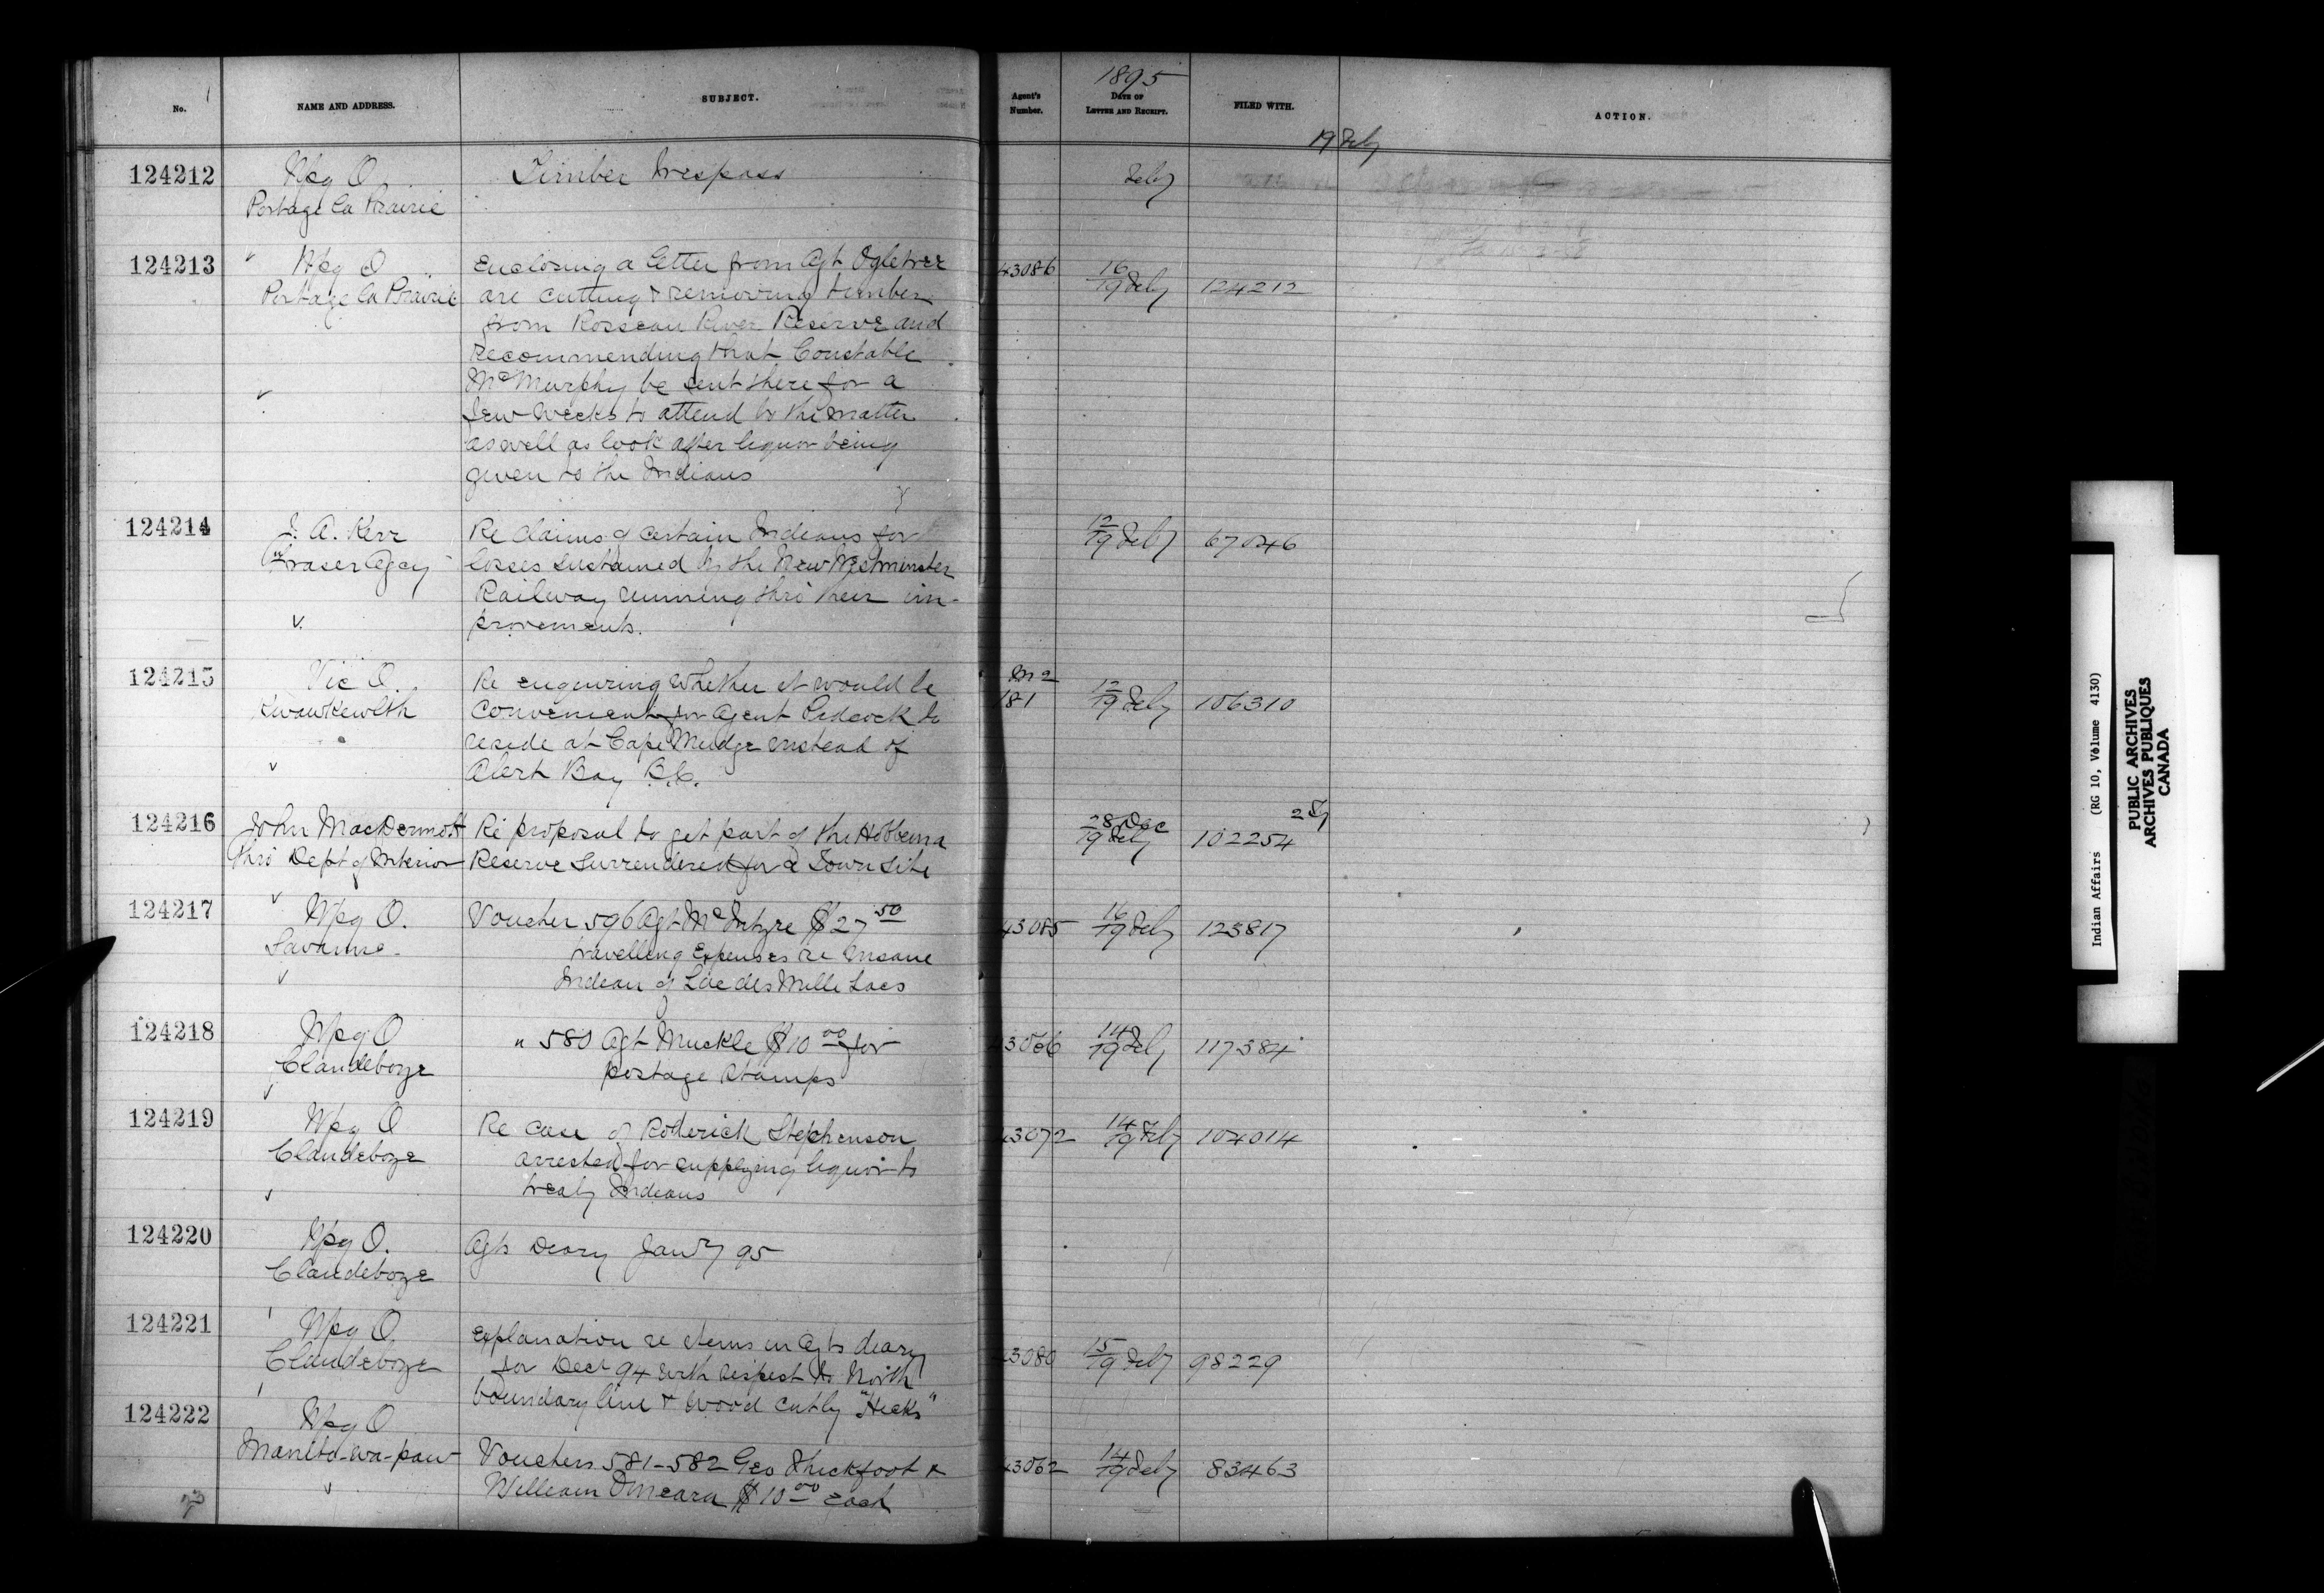 No. NAME AND ADDRESS. SUBJECT. Agent's Number. 1895 DATE OF LETTER AND RECEIPT. FILED WITH. ACTION.
19 Feby
124212 Wpg O. Timber Trespass Feby
Portage la Prairie
124213 Wpg O Enclosing a letter from Agt Ogletree 43086 16/19 Feby 124212
Portage la Prairie are cutting & removing timber
from Rosseau River Reserve and
recommending that Constable
McMurphy be sent there for a
few weeks to attend to the matter
as well as look after liquor being
given to the Indians
124214 J. A. Kerr Re claims of certain Indians for 12/19 Feby 67046
Fraser Agcy losses sustained by the New Westminster
Railway running thro their im-
provements.
124215 Vic O. Re enquiring whether it would be 181 12/19 Feby 106310
Kwawkewlth convenient for Agent Pidcock to
reside at Cape Mudge instead of
Alert Bay B.C.
124216 John MacDermott Re proposal to get part of the Hobbema 28 Dec/19 Feby 102254
thro Dept of Interior Reserve surrendered for a Town Site
124217 Wpg O. Voucher 596 Agt McIntyre $27 50 43085 16/19 Feby 123817
Savanne travelling Expenses re Insane
Indian of Lac des Mille Lacs
124218 Wpg O " 580 Agt Muckle $10 00 for 43066 14/19 Feby 117384
Clandeboye postage stamps
124219 Wpg O Re case of Roderick Stephenson 43072 14/19 Feby 104014
Clandeboye arrested for supplying liquor to
treaty Indians
124220 Wpg O. Agts Diary Jany 95
Clandeboye
124221 Wpg O. Explanation re items in Agts diary 43080 15/19 Feby 98229
Clandeboye for Decr 94 with respect to North
boundary line & wood cut by "Hicks"
124222 Wpg O
Manito-wa-paw Vouchers 581-582 Geo Thickfoot & 43062 14/19 Feby 83463
William Omeara $10 00 each
Indian Affairs (RG 10, Volume 4130)
PUBLIC ARCHIVES
ARCHIVES PUBLIQUES
CANADA